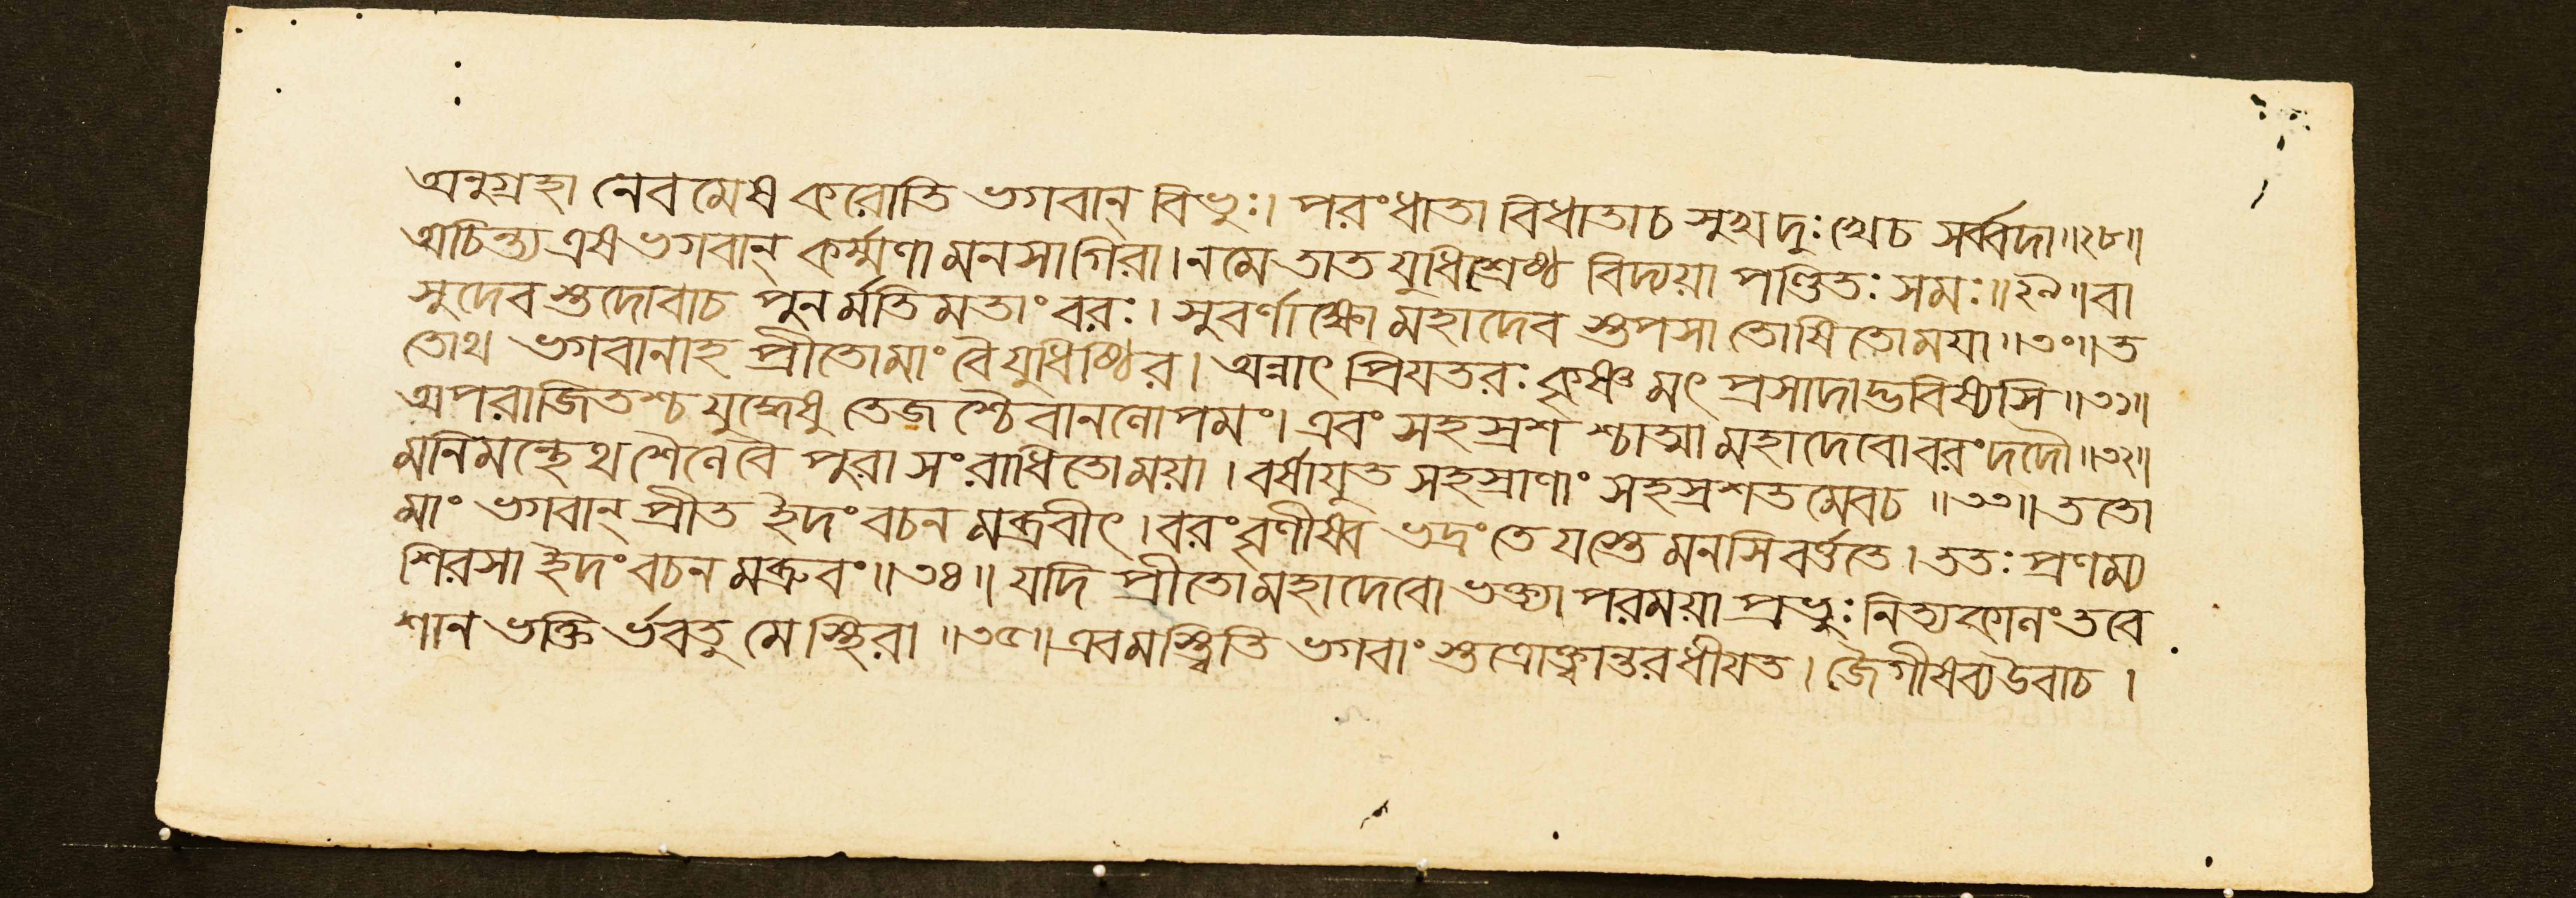 অনুগ্রহা নেবমেষ করোতি ভগবান্ বিভুঃ। পরংধাতা বিধাতাচ সুখদুঃখেচ সর্ব্বদা॥২৮॥
অচিন্ত্য এষ ভগবান্ কর্ম্মণা মনসাগিরা।নমে তাত যুধিশ্রেষ্ঠ বিদ্যয়া পণ্ডিতঃ সমঃ॥২৯॥বা
সুদেব স্তদোবাচ পুনর্মতিমতাংবরঃ। সুবর্ণাক্ষো মহাদেব স্তপসা তোষিতোময়া॥৩০॥ত
তোথ ভগবানাহ প্রীতোমাং বৈযুধিষ্ঠির। অন্নাৎ প্রিয়তরঃ কৃষ্ণ মৎ প্রসাদাদ্ভবিষ্যসি॥৩১॥
অপরাজিতশ্চ যুদ্ধেধু তেজশ্চৈবানণোপমং। এবং সহস্রশ শ্চাত্মা মহাদেবোবরংদদৌ॥৩২॥
মনিমন্থেথশৈণেবৈ পুরা সংরাধিতোময়া। বর্ষাযুত সহস্রাণাং সহস্রশতমেবচ ॥৩৩॥ ততো
মাং ভগবান্ প্রীত ইদং বচন মব্রবীৎ। বরংবৃণীষ্ব ভদ্রংতে যস্তে মনসিবর্ত্ততে। ততঃ প্রণম্য
শিরসা ইদং বচন মব্রুবং॥৩৪॥ যদি প্রীতোমহাদেবো ভক্ত্যা পরময়া প্রভুঃ নিত্যকানং তবে
শান ভক্তি র্ভবতু মে স্থিরা ॥৩৫॥ এবমস্ত্বিতি ভগবাং স্তত্রোক্ত্বান্তরধীযত। জৈগীষব্যউবাচ।